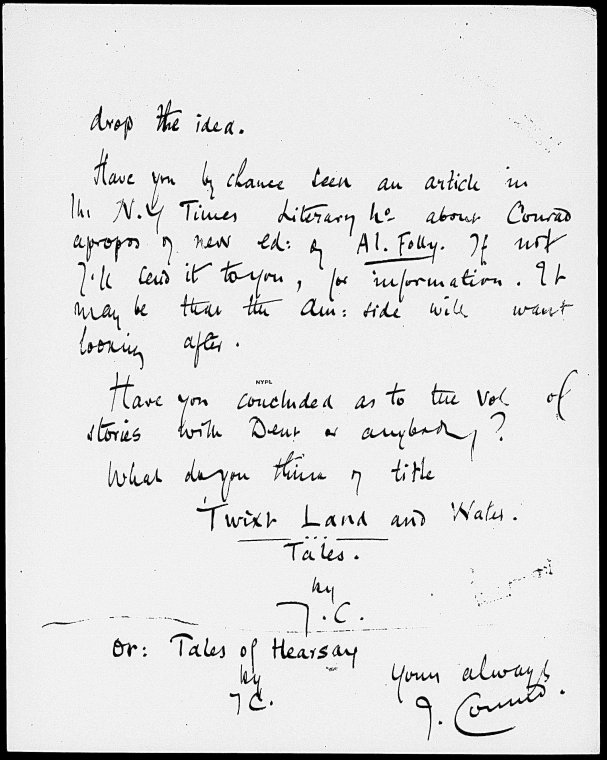 drop the idea.
Have you by chance seen an article in
the N.Y Times Literary No about Conrad
apropos of new ed: of Al. Folly. If not
I'll send it to you, for information. It
may be that the Am: side will want
looking after.
NYPL
Have you concluded as to the vol of
stories with Dent or anybody?
What do you think of title
'Twixt Land and Water.
Tales.
by
J.C.
or: Tales of Hearsay
by
JC.
Yours always
J. Conrad.